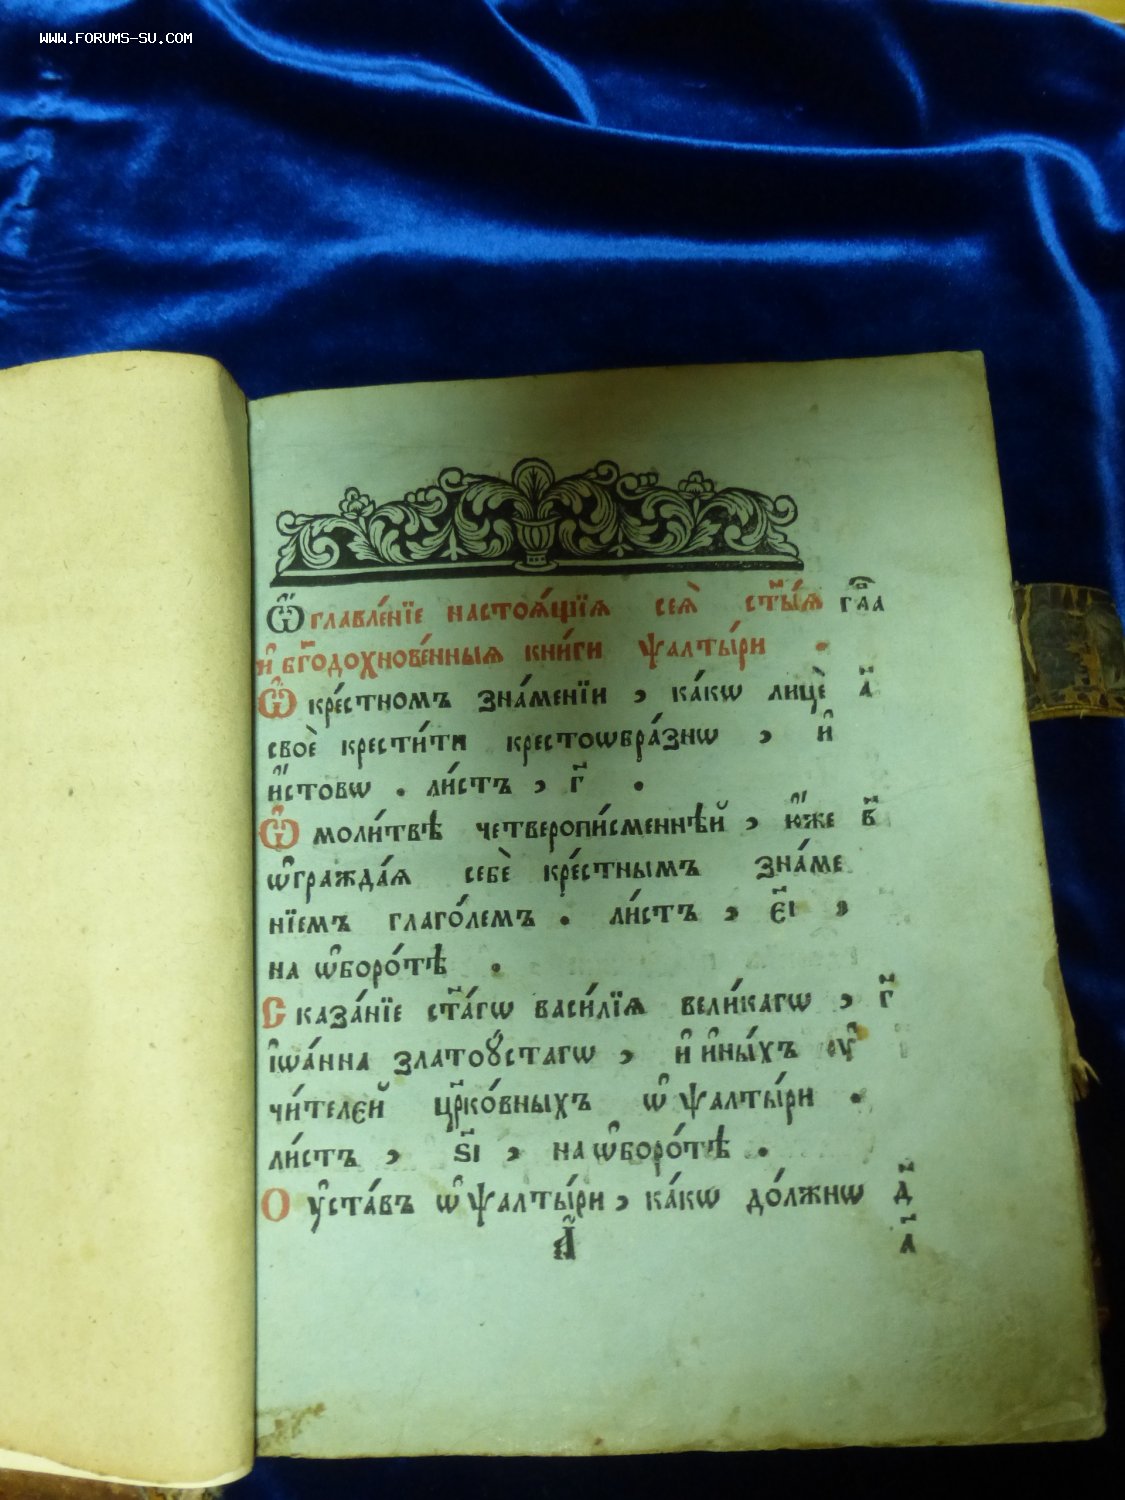 WWW.FORUMS-SU.COM
Ѡ҆́главле́нїе настоѧ́щїѧ сеѧ̀ ст҃ы́ѧ гл҃а
и҆ бг҃одохнове́нныѧ кни́ги ѱалты́ри .
Ѡ҆ кре́стномъ зна́менїи , ка́кѡ лицѐ а҃
своѐ крести́ти крестоѡбра́знѡ , и҆
и҆́стовѡ . ли́стъ , г҃ .
Ѡ҆ моли́твѣ четверопи́сменнѣй , ю҆́же в҃
ѡ҆гражда́ѧ себѐ кре́стнымъ зна́ме
нїемъ глаго́лемъ . ли́стъ , є҃і ,
на ѡ҆боро́тѣ .
Сказа́нїе ст҃а́гѡ васи́лїѧ вели́кагѡ , г҃
і҆ѡа́нна златоꙋ́стагѡ , и҆ и҆ны́хъ ᲂу҆
чи́телєй цр҃ко́вныхъ ѡ҆ ѱалты́ри .
ли́стъ , ѕ҃і , на ѡ҆боро́тѣ .
О у҆ста́въ ѡ҆ ѱалты́ри , ка́кѡ до́лжнѡ д҃
а҃ л҃